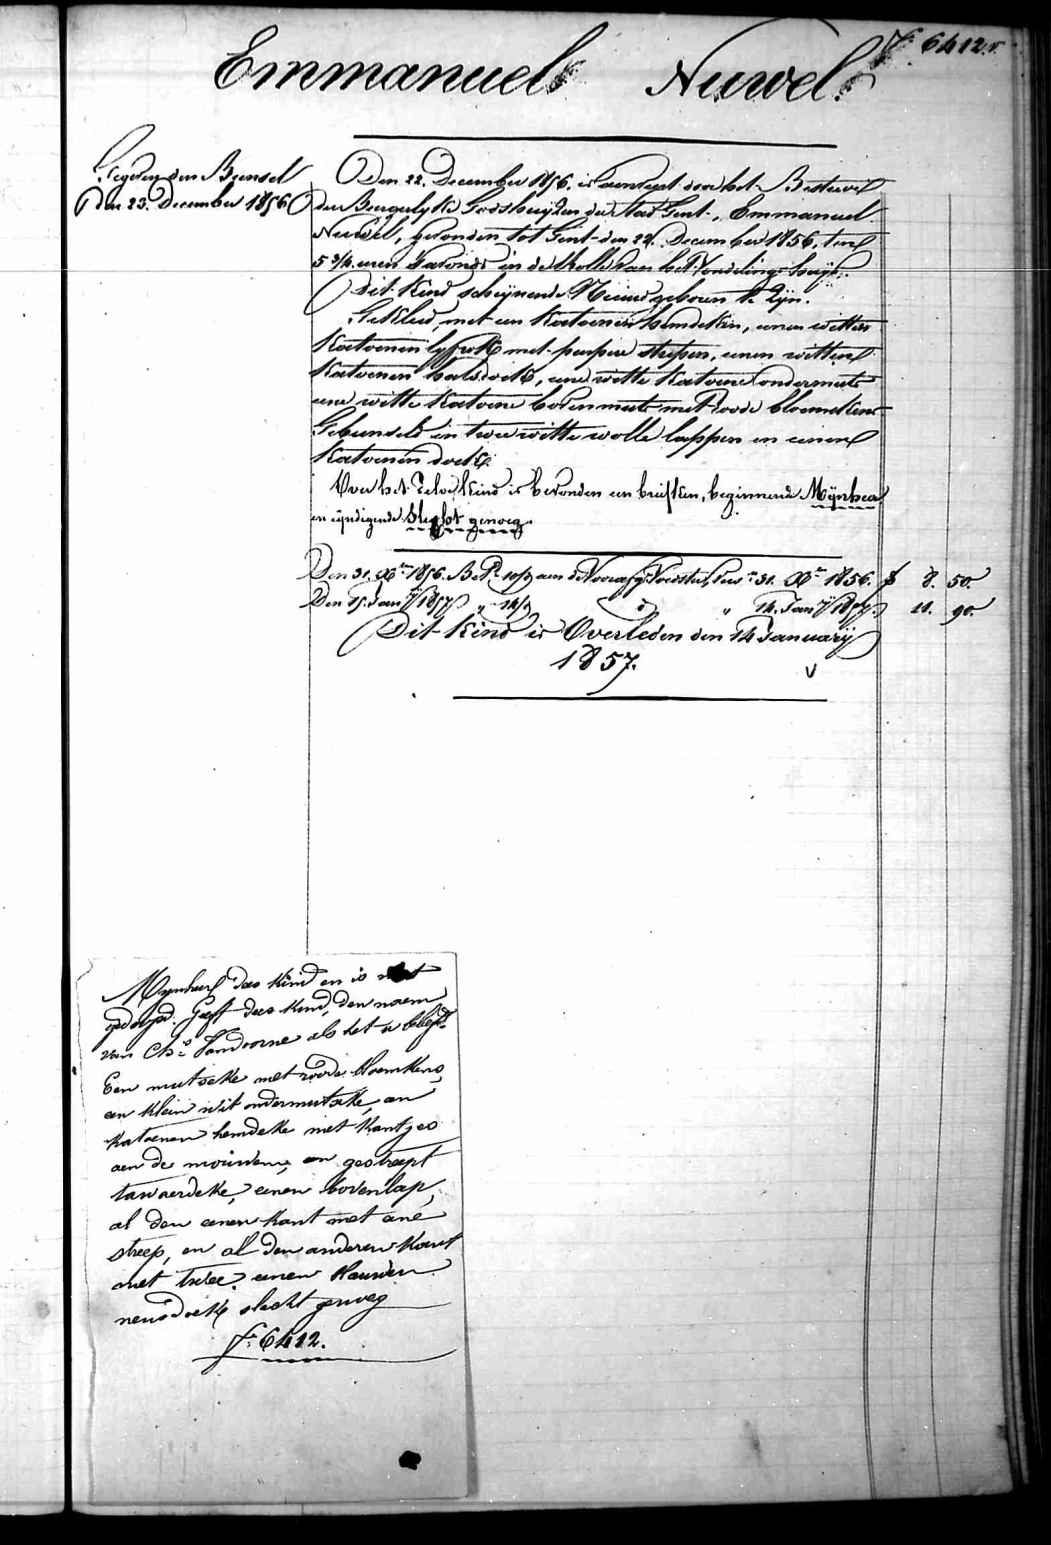 fº 6412.r
Emmanuel Nuwel.
Den 23. December 1856
Den 22. December 1856. is aenveerd door het Bestuer
der Burgerlyke Godshuijzen der stad Gent, Emmanuel
Nuwel, gevonden tot Gent den 22. December 1856, ten
5 3/4 uren s'avonds in de Rolle van het Vondelingshuijs.
Dit kind schijnende Nieuwgeboren te zijn.
Gekleed met een katoenen hemdeken, eenen witten
katoenen lyfrok met purpere strepen, eenen witten
katoenen halsdoek, eene witte katoene ondermuts
eene witte katoene bovenmuts met roode bloemekens
Gebunseld in twee witte wolle lappen en eenen
katoenen doek.
Over het zelve kind is bevonden een briefken, beginnende Mijnheer
en eijndigende Slegt genoeg.
Den 31. Xbre 1856. 31. Xbre 1856. 8. 50.
Den 15. Janry 1857 " 14/9 dº " 14. Janry 1857. 11. 90.
Dit kind is Overleden den 14 January
1857.
Mynheer des kind en is niet
gedoopd. Geeft dees kind, den naem
van Chs Vandoorne als het u belieft
Een mutseke met roode bloemkens,
een klein wit ondermutseke, en
katoenen hemdeke met kantjes
aen de mouwen, en gestreept
tawaerdeke, eenen bovenlap,
al den eenen kant met ene
streep, en al den anderen kant
met twee. eenen blauwen
neusdoek slecht genoeg
fº 6412.